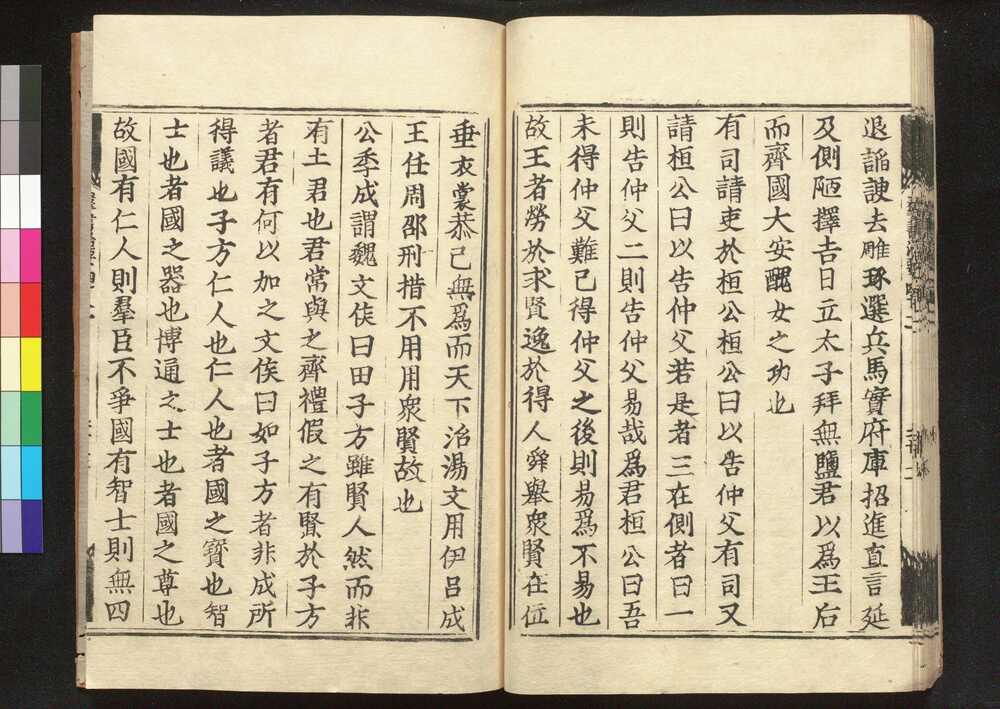 退諂諛去雕琢選兵馬實府庫招進直言延
及側陋擇吉日立太子拜無鹽君以爲王后
而齊國大安醜女之功也
有司請吏於桓公桓公曰以告仲父有司又
請桓公曰以告仲父若是者三在側者曰一
則告仲父二則告仲父易哉爲君桓公曰吾
未得仲父難已得仲父之後則易爲不易也
故王者勞於求賢逸於得人舜舉衆賢在位
垂衣裳恭己無爲而天下治湯文用伊呂成
王任周邵刑措不用用衆賢故也
公季成謂魏文侯曰田子方雖賢人然而非
有土君也君常與之齊禮假之有賢於子方
者君有何以加之文侯曰如子方者非成所
得議也子方仁人也仁人也者國之寶也智
士也者國之器也博通之士也者國之尊也
故國有仁人則羣臣不爭國有智士則無四